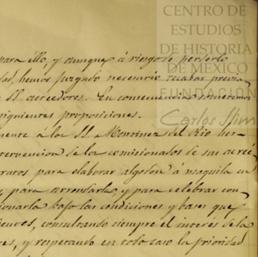 CENTRO DE
ESTUDIOS
DE HISTORIA
DE MÉXICO
FUNDACIÓN
Carlos Slim
para ello, y aunque á riesgo de perderlo
hemos juzgado necesario recabar previa
SS. acreedores. En consecuencia
siguientes proposiciones.
á los SS. Martinez del Rio her
intervencion de la comisionados de sus acree
para elaborar algodon á maquila en
para arrendarla, y para celebrar con
bajo las condiciones y bases que
consultando siempre el interés de la
y respetando en todo caso la prioridad